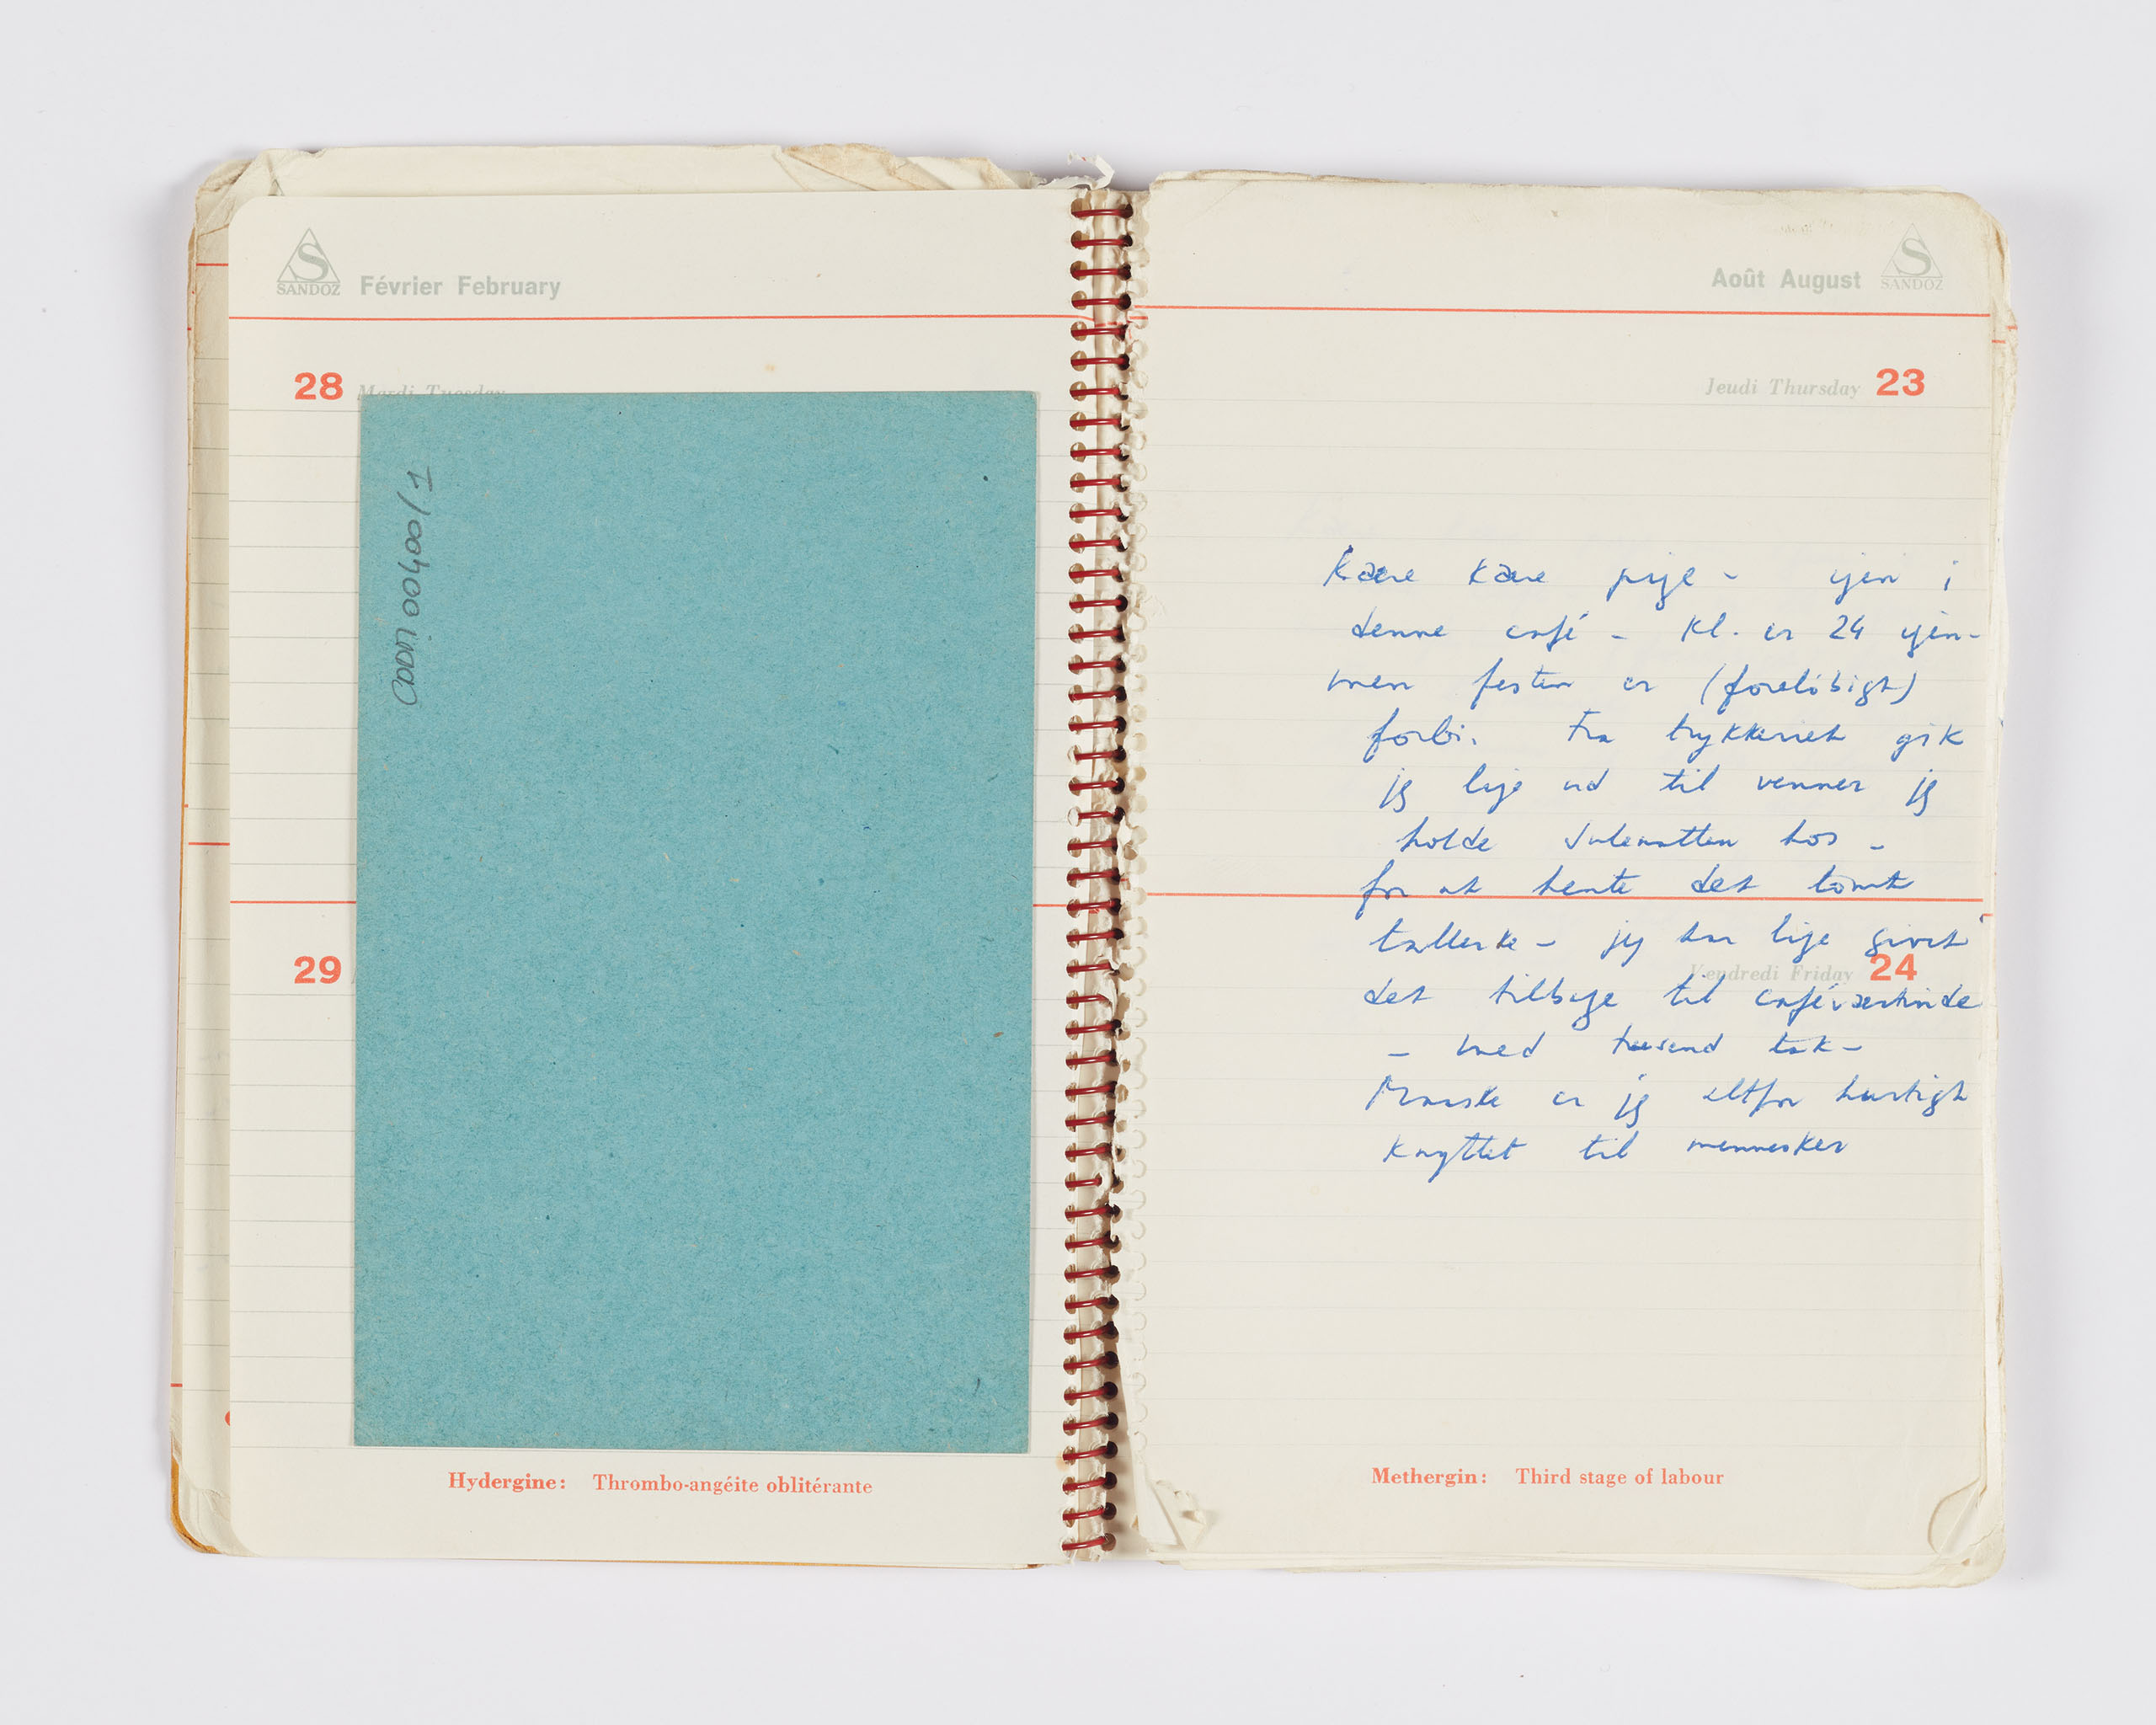 SANDOZ Février February
28 Mardi Tuesday
29
Hydergine: Thrombo-angéite oblitérante
Août August SANDOZ
Jeudi Thursday 23
Kære kære pige - igen i
denne café - kl. er 24 igen-
men festen er (foreløbigt)
forbi. Fra trykkeriet gik
jeg lige ud til venner jeg
holdt Julenatten hos -
for at hente det tomt
tallerk - jeg har lige givet
Vendredi Friday 24
det tilbage til caféværtinde
- med tusend tak -
Maaske er jeg altfor hurtigt
knyttet til mennesker
Methergin: Third stage of labour